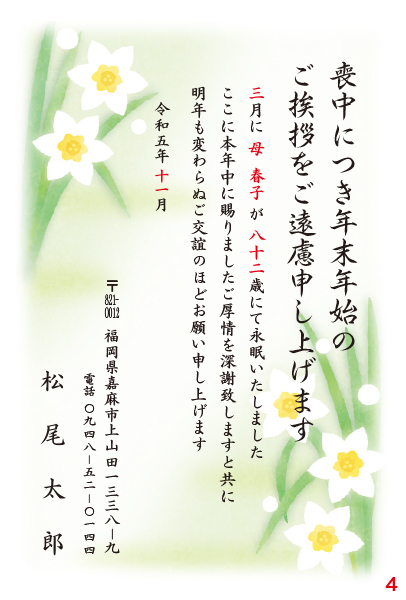 喪中につき年末年始の
ご挨拶をご遠慮申し上げます
三月に 母 春子 が 八十二歳にて永眠いたしました
ここに本年中に賜りましたご厚情を深謝致しますと共に
明年も変わらぬご交誼のほどお願い申し上げます
令和五年十一月
〒821-0012 福岡県嘉麻市上山田一三三八ー九
電話 〇九四八ー五二ー〇一四四
松尾太郎
4